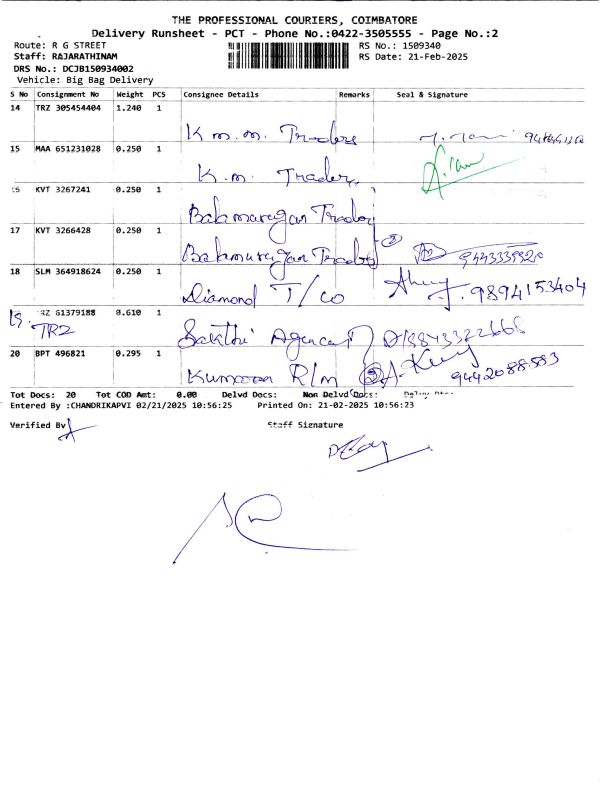 THE PROFESSIONAL COURIERS, COIMBATORE
Delivery Runsheet - PCT - Phone No.:0422-3505555 - Page No.:2
Route: R G STREET
RS No.: 1509340
Staff: RAJARATHINAM
RS Date: 21-Feb-2025
DRS No.: DCJB150934002
Vehicle: Big Bag Delivery
S No Consignment No Weight PCS Consignee Details Remarks Seal & Signature
14 TRZ 305454404 1.240 1
K m. m. Traders
15 MAA 651231028 0.250 1
K. m. Traders
KVT 3267241 0.250 1
Balamurugan Traders
17 KVT 3266428 0.250 1
Balamurugan Traders
18 SLM 364918624 0.250 1
Diamond T/co 9894153404
19. TRZ 61379188 8.610 1
TRZ
Sakthi
20 BPT 496821 0.295 1
Kumaran R/m 9442088583
Tot Docs: 20 Tot COD Amt: 0.00 Delvd Docs: Non Delvd Docs:
Entered By :CHANDRIKAPVI 02/21/2025 10:56:25 Printed On: 21-02-2025 10:56:23
Verified By
Staff Signature